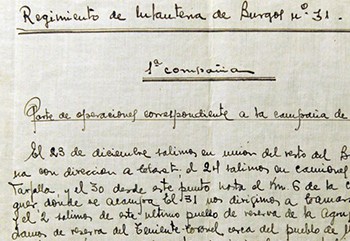 Regimiento de Infantería de Burgos nº 31.
1ª compañía
Parte de operaciones correspondiente a la campaña de
El 23 de diciembre salimos en unión del resto del B
na con dirección a el 24 salimos en camiones
Tafalla, y el 30 desde este punto hasta el Km. 6 de la c
quer donde se acampa El 31 nos dirigimos a Camar
y el 2 salimos de este ultimo pueblo de reserva de la agru
damos de reserva del Teniente Coronel cerca del pueblo de